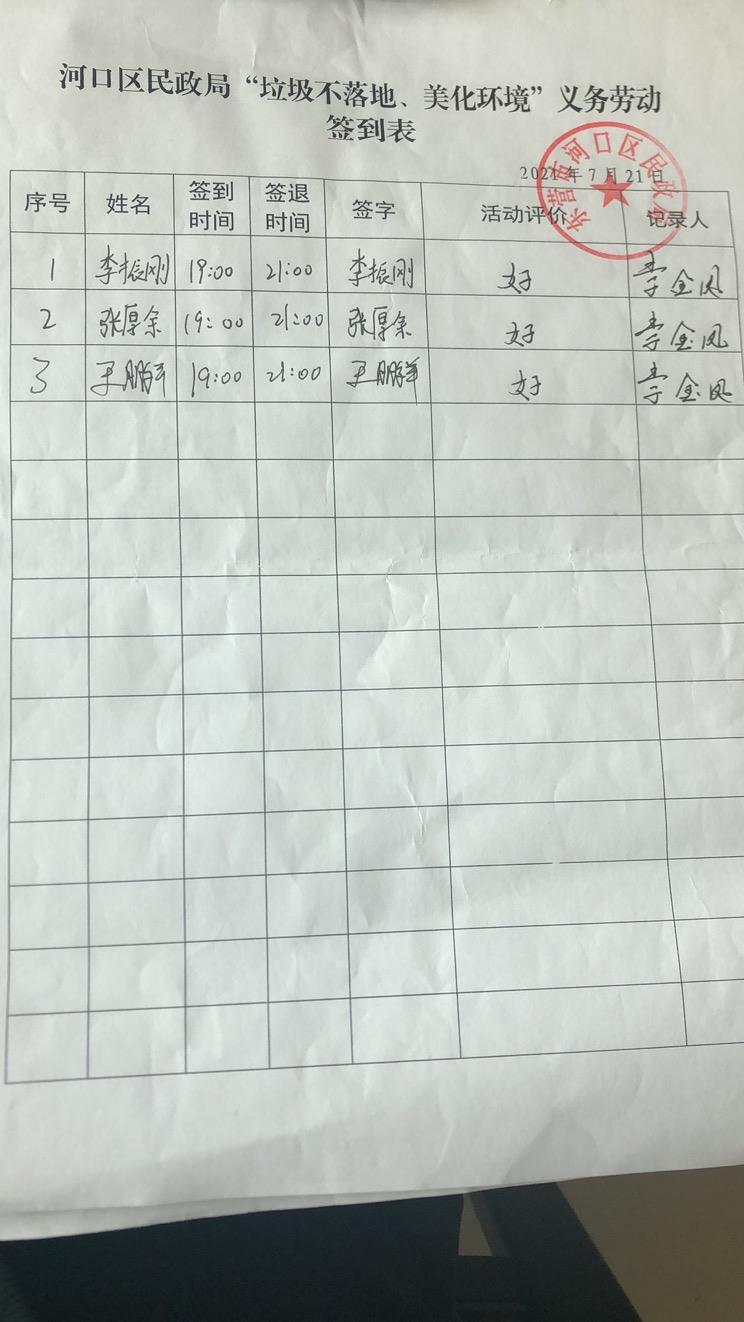 河口区民政局“垃圾不落地、美化环境”义务劳动
签到表
2021年7月21日
东营市河口区民政局
序号 姓名 签到时间 签退时间 签字 活动评价 记录人
1 李振刚 19:00 21:00 李振刚 好 李金凤
2 张厚余 19:00 21:00 张厚余 好 李金凤
3 王鹏洋 19:00 21:00 王鹏洋 好 李金凤